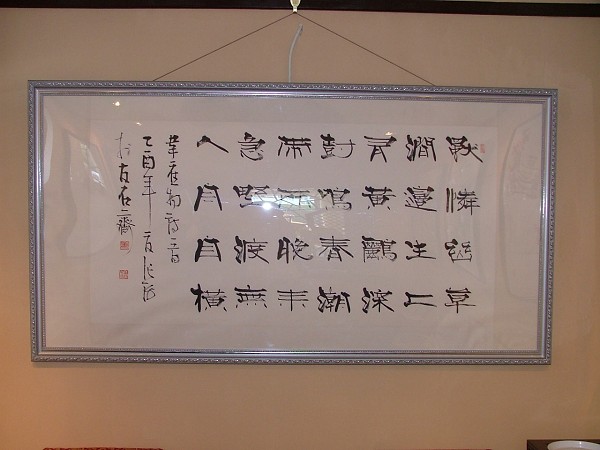 獨憐幽草
澗邊生上
有黃鸝深
樹鳴春潮
帶雨晚來
急野渡無
人舟自橫
韋應物詩一首
乙酉年